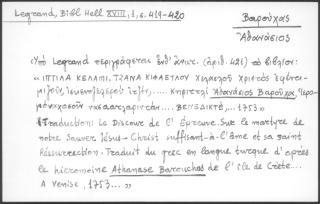 Legrand, Bibl Hell XVIII, 1, σ. 419-420
Βαρούχας
Ἀθανάσιος
Ὑπὸ Legrand περιγράφεται ὑπ' ἀριθ. (ἀριθ. 421) τὸ βιβλίον:
« ΙΠΤΙΛΑ ΚΕΛΑΜΙ, ΤΖΑΝΑ ΚΙΦΑΕΤΛΟΥ
.... Κηριτλὶ Ἀθανάσιος Βαρούχα Ἱερο-
.... ΒΕΝΕΔΙΚΤΕ, ... 1753 »
(Traduction: Le Discours de l'Épreuve. Sur le martyre de
notre Sauveur Jésus-Christ suffisant-à-l'âme et sa saint
Résurrection. Traduit du grec en langue turque d'après
le hiéromoine Athanase Barouchas de l'île de Crète....
A Venise, 1753... »